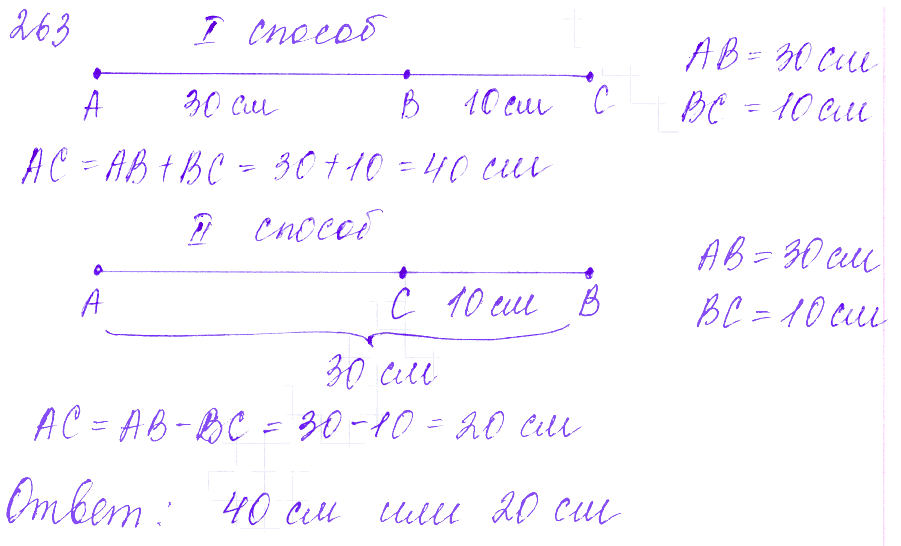 263 I способ
A 30 см B 10 см C
AB = 30 см
BC = 10 см
AC = AB + BC = 30 + 10 = 40 см
II способ
A C 10 см B
30 см
AB = 30 см
BC = 10 см
AC = AB - BC = 30 - 10 = 20 см
Ответ: 40 см или 20 см